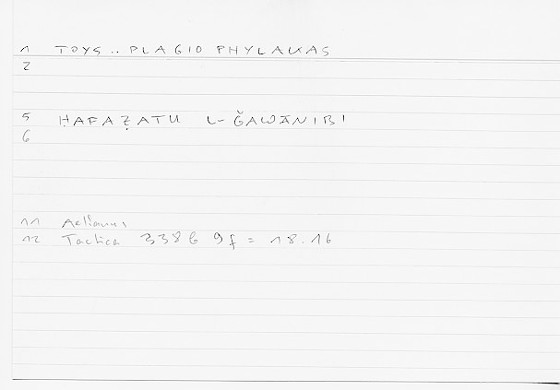 1 TOYS .. PLAGIO PHYLAKAS
2
5 ḤAFAẒATU L-ǦAWĀNIBI
6
11 Aelianus
12 Tactica 338b 9f = 18.16